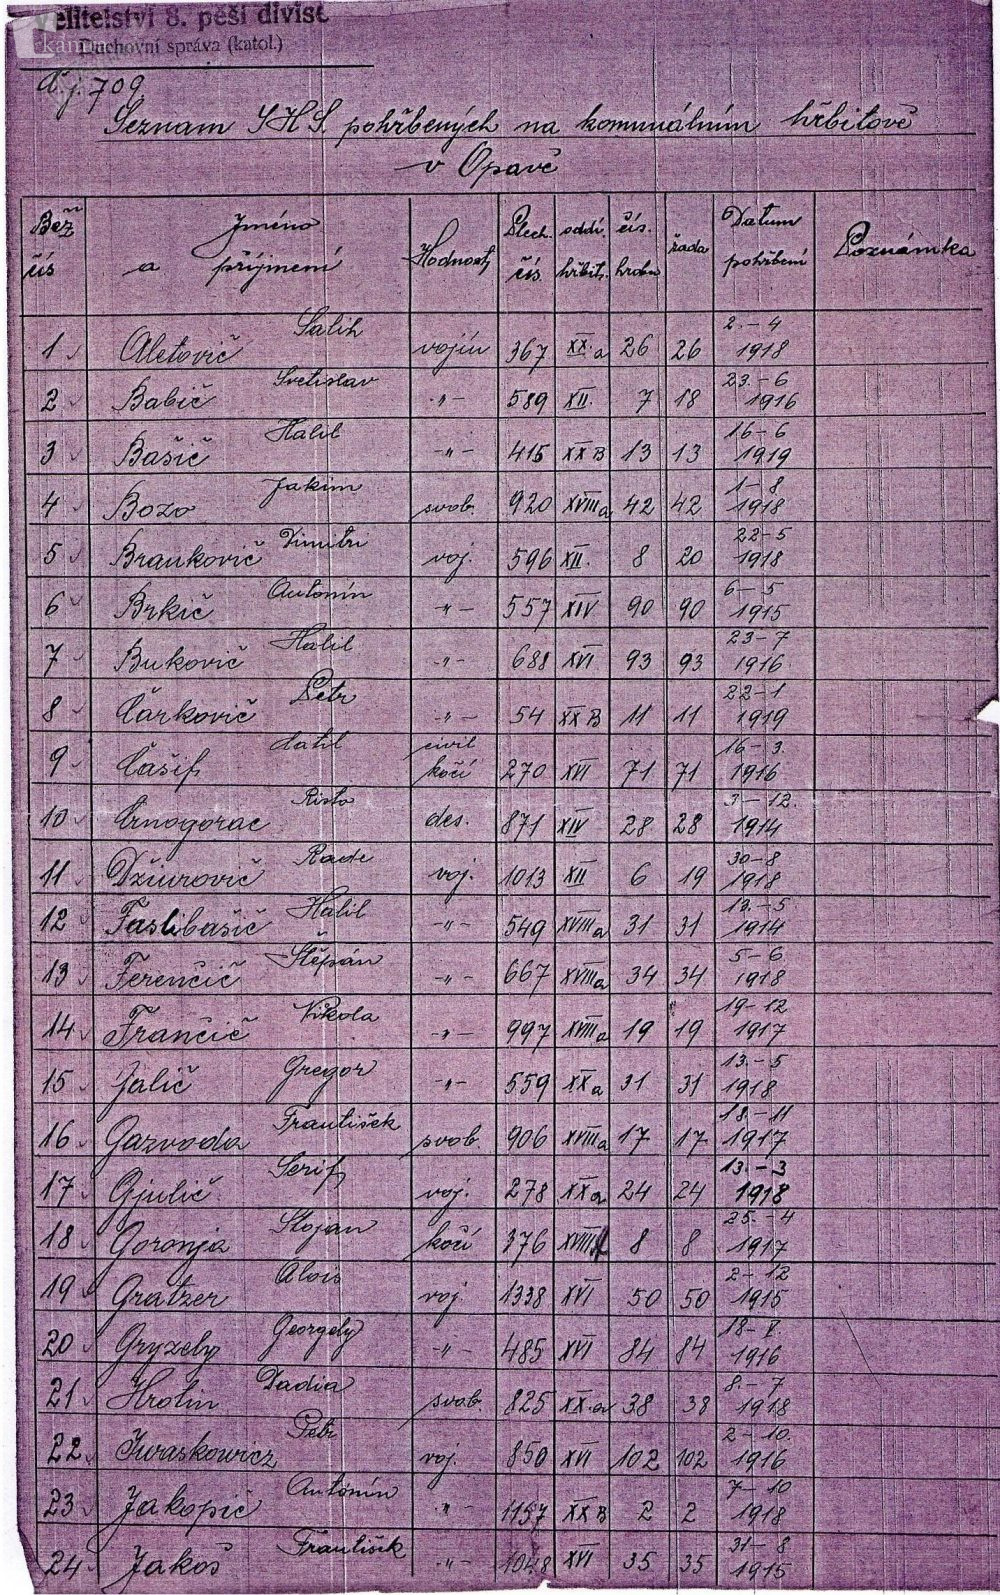 Velitelství 8. pěší divise
Duchovní správa (katol.)
č.j. 709
Seznam SHS. pohřbených na komunálním hřbitově
v Opavě
Běž čís | Jméno a příjmení | Hodnost | Plech. čís. | oddíl hřbit. | čís. hrobu | řada | Datum pohřbení | Poznámka
1 Aletovič Salih vojín 367 XX.a 26 26 2.-4 1918
2 Babič Svetislav -"- 589 XII. 7 18 23.-6 1916
3 Bašič Halil -"- 415 XX B 13 13 16-6 1919
4 Bozo Jakim svob. 920 XVIII a 42 42 1-8 1918
5 Brankovič Dimitri voj. 596 XII. 8 20 22-5 1918
6 Brkič Antonín -"- 557 XIV 90 90 6-5 1915
7 Bukovič Halil -"- 688 XVI 93 93 23-7 1916
8 Čarkovič Petr -"- 54 XX B 11 11 22-1 1919
9 Čašif Latil civil kočí 270 XVI 71 71 16-3. 1916
10 Črnogorac Risto des. 871 XIV 28 28 3-12. 1914
11 Džiurovič Rade voj. 1013 XII 6 19 30-8 1918
12 Faslibašič Halil -"- 549 XVIII a 31 31 12.-5 1914
13 Ferenčič Štěpán -"- 667 XVIII a 34 34 5-6 1918
14 Frančič Nikola -"- 997 XVIII a 19 19 19-12 1917
15 Jalič Gregor -"- 559 XX a 31 31 13.-5 1918
16 Gazvoda František svob. 906 XVIII a 17 17 18-11 1917
17 Gjulič Serif voj. 278 XX a 24 24 13.-3 1918
18 Goronja Stojan kočí 376 XVIII 8 8 25.-4 1917
19 Gratzer Alois voj. 1338 XVI 50 50 2-12 1915
20 Gryzely Georgely -"- 485 XVI 84 84 18-V. 1916
21 Hrolin Dadia svob. 825 XX.a 38 38 8.-7 1918
22 Iwaskowicz Petr voj. 850 XVI 102 102 2-10. 1916
23 Jakopič Antonín -"- 1157 XX B 2 2 7-10 1918
24 Jakoš František -"- 1048 XVI 35 35 31-8 1915